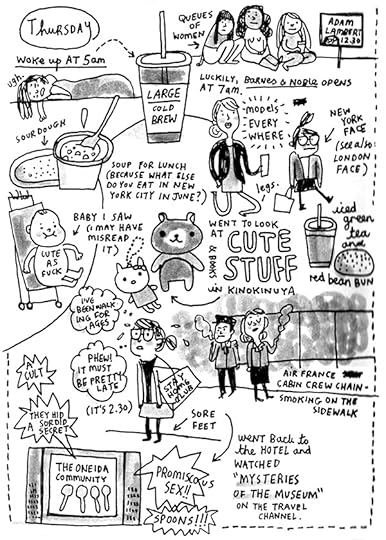 THURSDAY
WOKE UP AT 5am
ugh.
QUEUES
OF
WOMEN
ADAM
LAMBERT
12.30
LARGE
COLD
BREW
LUCKILY, BARNES & NOBLE OPENS
AT 7am.
SOURDOUGH
SOUP FOR LUNCH
(BECAUSE WHAT ELSE
DO YOU EAT IN NEW
YORK CITY IN JUNE?)
MODELS
EVERY
WHERE
legs.
NEW
YORK
FACE
(SEE ALSO:
LONDON
FACE)
BABY I SAW
(I MAY HAVE
MISREAD
IT)
CUTE
AS
FUCK
WENT TO LOOK
AT CUTE
STUFF
& BOOKS
in KINOKINUYA
iced
green
tea
and
red bean BUN
I'VE
BEEN WALK
ING FOR
AGES
PHEW!
IT MUST
BE PRETTY
LATE
(IT'S 2.30)
STAY
HOME
CLUB
SORE
FEET
AIR FRANCE
CABIN CREW CHAIN-
SMOKING ON THE
SIDEWALK
A CULT
THEY HID
A SORDID
SECRET
THE ONEIDA
COMMUNITY
PROMISCUOUS
SEX!!
SPOONS!!!
WENT BACK to
the HOTEL AND
WATCHED
"MYSTERIES
OF THE MUSEUM"
ON THE TRAVEL
CHANNEL.